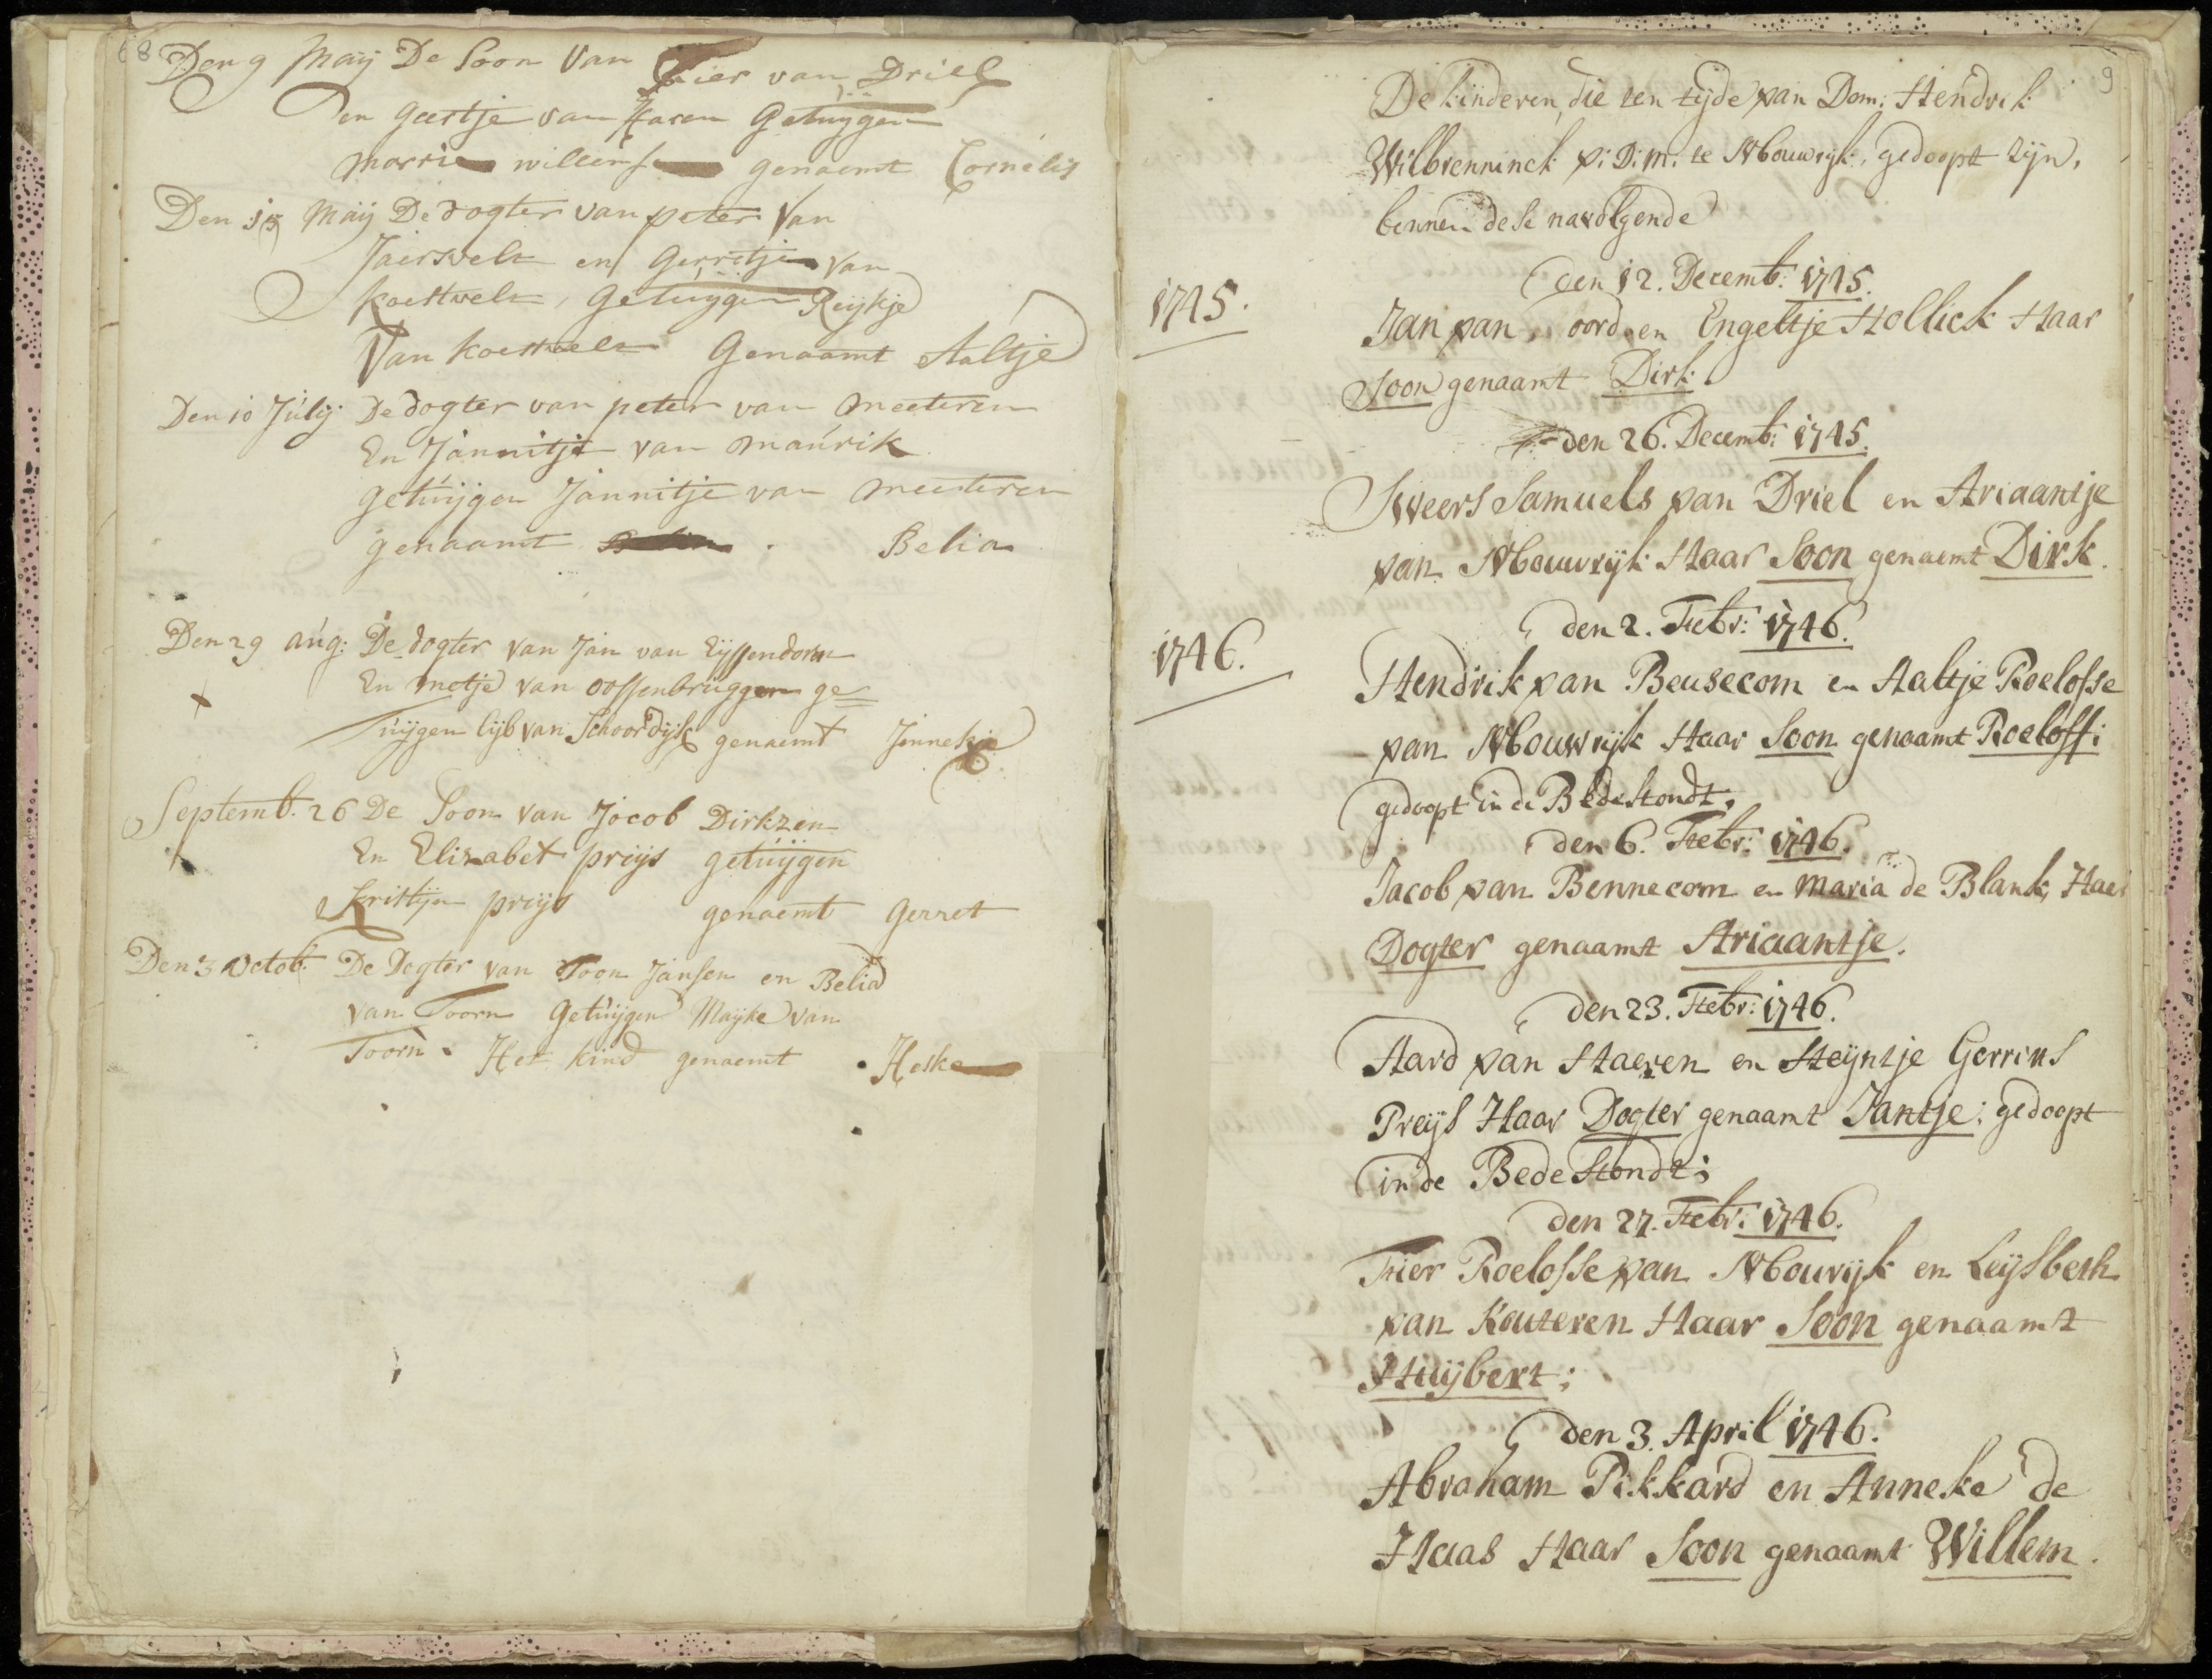 68
Den 9 Maij De Soon Van Frier van Driel
en Geertje van Haren Getuygen
Marrie willemse genaemt Cornelis
Den 15 Maij De dogter van peter Van
Jaersvelt en Gerritje Van
Koestvelt, Getuygen Reykje
Van Koestvelt Genaamt Aaltje
Den 10 Julij De dogter van peter van Meeteren
En Jannitje van Maurik
getuijgen Jannitje van Meeteren
genaamt Belia
Den 29 aug: De dogter van Jan van Eyssendorn
En metje van Ossenbruggen ge=
Tuijgen lijb van Schoordijk genaemt Jenneke
Septemb. 26 De Soon van Jacob Dirkzen
En Elizabet prijs getuijgen
Kristijn prijs genaemt Gerret
Den 3 Octob. De Dogter van Toon Jansen en Belia
van Toorn Getuijgen Maijke van
Toorn. Het kind genaemt Heske
9
De kinderen, die ten tijde van Dom: Hendrik
Wilbrenninck V: D: M: te Mbouwrijk, gedoopt zijn,
bennen dese navolgende
den 12. Decemb: 1745.
1745.
Jan van oord en Engeltje Hollick Haar
Soon genaamt Dirk.
den 26. Decemb: 1745.
Sweers Samuels van Driel en Ariaantje
van Mbouwrijk Haar Soon genaemt Dirk.
den 2. Febr: 1746.
1746.
Hendrik van Beusecom en Aaltje Roelofse
van Mbouwrijk Haar Soon genaamt Roeloff;
gedoopt in de Bedestondt.
den 6. Febr: 1746.
Jacob van Bennecom en Maria de Blank, Haer
Dogter genaamt Ariaantje.
den 23. Febr: 1746.
Aard van Haeren en Heijntje Gerrits
Preijs Haar Dogter genaamt Jantje: gedoopt
in de Bedestondt;
den 27. Febr: 1746.
Frier Roelofse van Mbouwijk en Leijsbeth
van Kouteren Haar Soon genaamt
Huijbert;
den 3. April 1746.
Abraham Pikkard en Anneke de
Haas Haar Soon genaamt Willem.